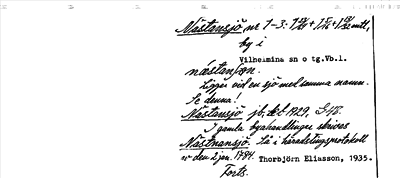 Nästansjö nr 1-3:
by i
Vilhelmina sn o tg.Vb.l.
næstanʃøn.
Ligger vid en sjö med samma namn.
Se denna!
Nästansjö jb. 1929, S 48.
I gamla byahandlingar skrives
Nästnansjö. Så i häradstingsprotokoll
av den 2 jan. 1794. Thorbjörn Eliasson, 1935.
Forts.